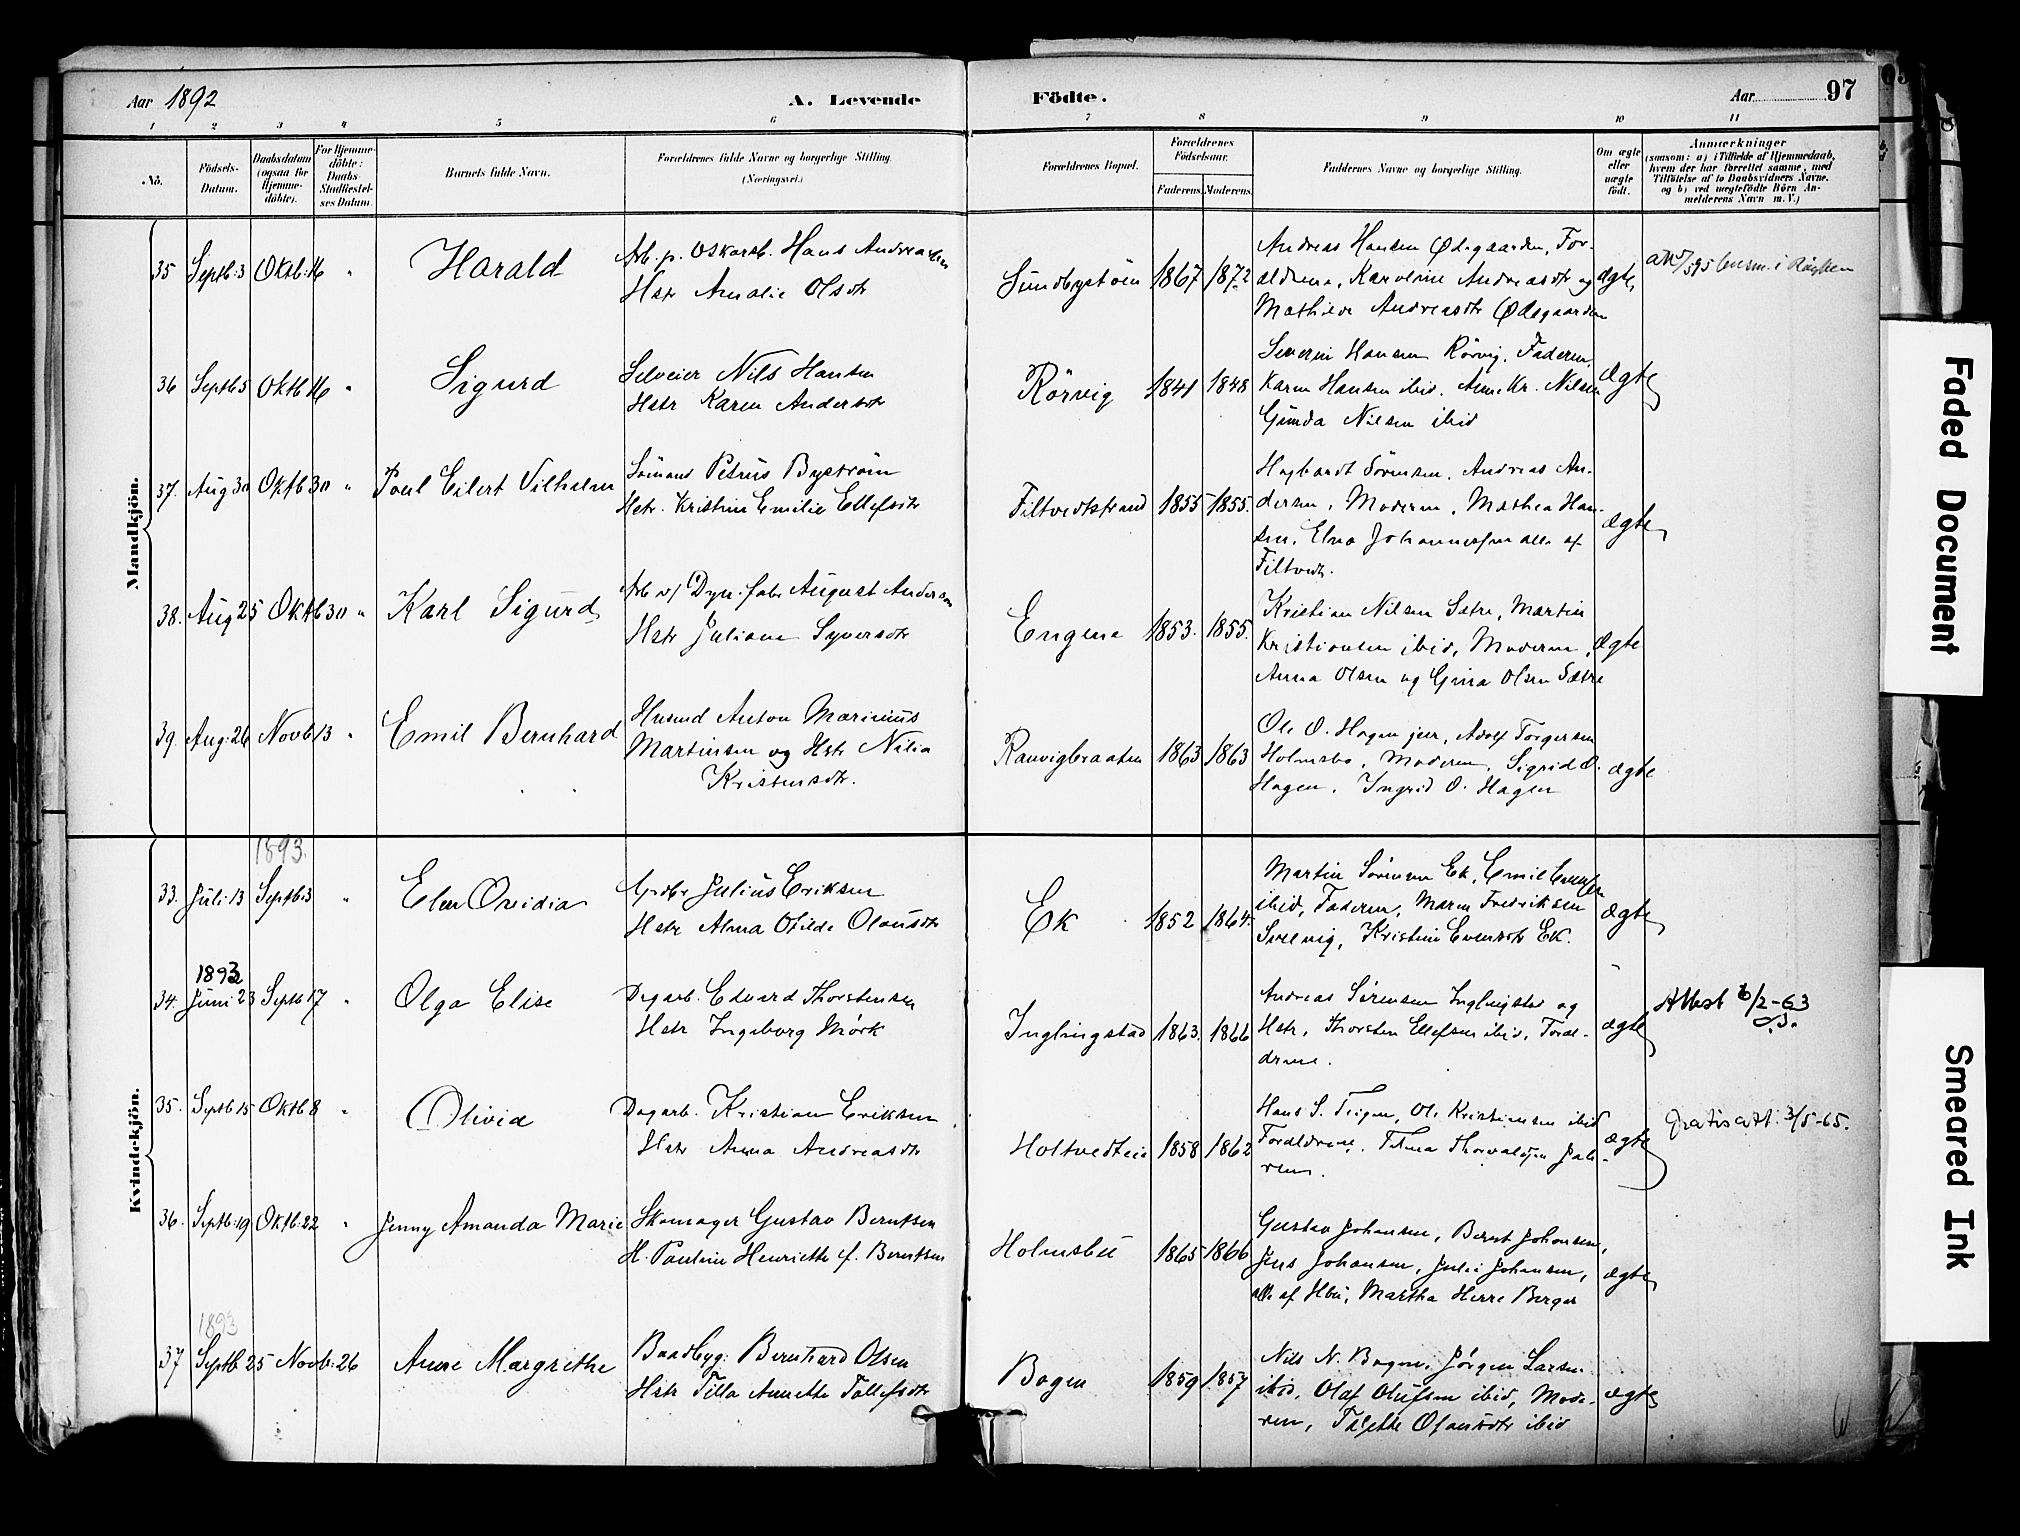 Aar 1892
A. Levende
Födte.
Aar 97
1 2 3 4 5 6 7 8 9 10 11
No.
Födsels-
Datum.
Daabsdatum
(ogsaa for
Hjemme-
döbte).
For Hjemme-
döbte:
Daabs-
Stadfæstel-
ses Datum.
Barnets fulde Navn.
Forældrenes fulde Navne og borgerlige Stilling.
(Næringsvei.)
Forældrenes Bopæl.
Forældrenes
Födselsaar.
Faderens. Moderens.
Faddernes Navne og borgerlige Stilling.
Om ægte
eller
uægte
födt.
Anmærkninger
(saasom: a) i Tilfælde af Hjemmedaab,
hvem der har forrettet samme, med
Tilföielse af to Daabsvidners Navne,
og b) ved uægtefödte Börn An-
melderens Navn m. V.)
Mandkjön.
35 Septb: 3 Oktb: 16 " Harald
Arb. p. Oskarsb. Hans Andreasen
Hstr Amalie Olsdtr
Sundbystöen 1867 1872
Andreas Hansen Ødegaarden, For-
ældrene, Karoline Andreasdtr og
Mathilde Andreasdtr Ødegaarden
ægte
i Röyken
36 Septb 5 Oktb 16 " Sigurd
Selveier Nils Hansen
Hstr Karen Andersdtr
Rörvig 1841 1848
Severin Hansen Rörvig, Faderen,
Karen Hansen ibid, Anne Kr. Nilsen
Gunda Nilsen ibid
ægte
37. Aug 30 Oktb 30 " Poul Eilert Vilhelm
Sömand Petrus Byström
Hstr. Kristine Emilie Ellefsdtr
Filtvedtstrand 1855 1855.
Hagbardt Sörensen, Andreas An-
dersen, Moderen, Mathea Han-
sen, Elna Johannesen alle af
Filtvedt.
ægte
38. Aug 25 Oktb 30 " Karl Sigurd
Arb v/ Dyn. fabr August Andersen
Hstr Juliane Syversdtr
Engene 1853. 1855.
Kristian Nilsen Sætre, Martin
Kristiansen ibid, Moderen,
Anna Olsen og Gina Olsen Sætre
ægte
39. Aug: 26 Novb 13 " Emil Bernhard
Husmd Anton Marinius
Martinsen og Hstr Nilia
Kristensdtr.
Ranvigbraaten 1863 1863
Ole O. Hagen jun, Adolf Torgersen
Holmsbo, Moderen, Sigrid O.
Hagen, Ingrid O. Hagen
ægte
Kvindekjön.
1893.
33. Juli 13 Septb 3 " Elen Ovidia
Gprdbr Julius Eriksen
Hstr Alma Otilde Olausdtr
Ek 1852 1864.
Martin Sörensen Ek, Emil Evensen
ibid, Faderen, Maren Fredriksen
Svelvig, Kristine Evensdtr Ek.
ægte
1893
34. Juni 23 Septb 17 " Olga Elise
Dagarb. Edvard Thorstensen
Hstr Ingeborg Mörk
Inglingstad 1863. 1866
Andreas Sörensen Inglingstad og
Hstr, Thorsten Ellefsen ibid, Foræl-
drene.
ægte
Attest 6/2-63
35. Septb 15 Oktb 8 " Olivia
Dagarb. Kristian Eriksen
Hstr Anna Andreasdtr
Holtvedteie 1858 1862
Hans S. Teigen, Ole Kristiansen ibid
Forældrene, Tilma Thorvaldsen
ægte
Gratis att. 3/5-65.
36. Septb: 19 Oktb: 22 " Jenny Amanda Marie
Skomager Gustav Berntsen
H. Pauline Henriette f. Berntsen
Holmsbu 1865 1866
Gustav Johansen, Bernt Johansen,
Jens Johansen, Julie Johansen,
alle af Hbu, Martha Herre Berger
ægte
1893
37 Septb 25 Novb: 26 Anne Margrethe
Baadbyg: Bernhard Olsen
Hstr Tilla Annette Tollefsdtr
Bogen 1859 1857
Nils N. Bogen, Jörgen Larsen
ibid, Olaf Olufsen ibid, Mode-
ren, Talette Olausdtr ibid
ægte
Faded Document
Smeared Ink